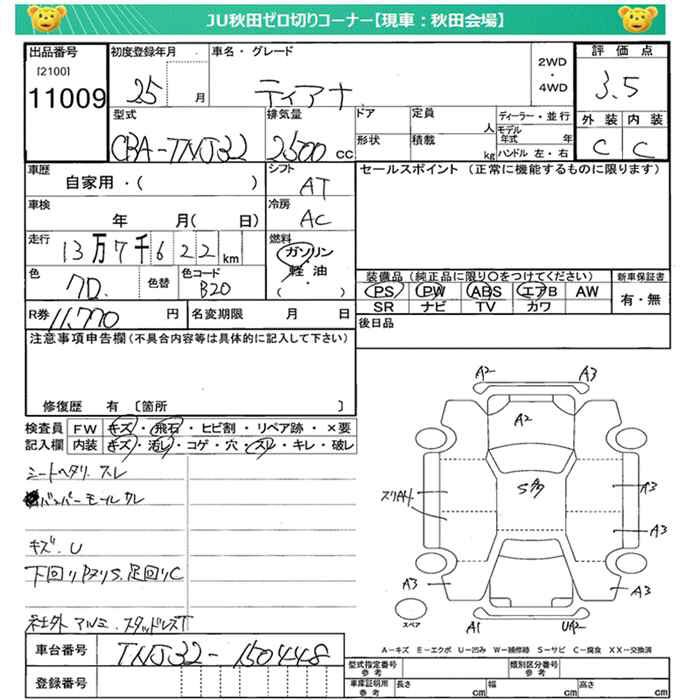 JU秋田ゼロ切りコーナー【現車：秋田会場】
出品番号
[2100]
11009
初度登録年月
25 月
車名・グレード
ティアナ
2WD
・
4WD
評価点
3.5
外装 内装
C C
型式
CBA-TNJ32
排気量
2500 cc
ドア
形状
定員 人
積載 kg
ディーラー・並行
モデル年式 年
ハンドル 左・右
車歴
自家用・( )
シフト
AT
車検
年 月( 日)
冷房
AC
走行
13万7千622km
燃料
ガソリン
軽油
( ・ )
色
色替
色コード
B20
R券 11,770 円
名変期限 月 日
セールスポイント (正常に機能するものに限ります)
装備品 (純正品に限り○をつけてください)
PS PW ABS エアB AW
SR ナビ TV カワ
新車保証書
有・無
後日品
注意事項申告欄(不具合内容等は具体的に記入して下さい)
修復歴 有 〔箇所 〕
検査員記入欄
FW キズ・飛石・ヒビ割・リペア跡・×要
内装 キズ・汚レ・コゲ・穴・スレ・キレ・破レ
シートヘタリ、スレ
バンパーモール
キズ.U
下回りPヌリS、足回りC
社外アルミ.スタッドレスT
車台番号 TNJ32-150448
登録番号
A2 A3
A2
スリA4
A3
A3
A3 A3
A1 UA2
スペア
A-キズ E-エクボ U-凹み W-補修跡 S-サビ C-腐食 XX-交換済
型式指定番号 参考
類別区分番号 参考
車庫証明用 参考
長さ cm
幅 cm
高さ cm